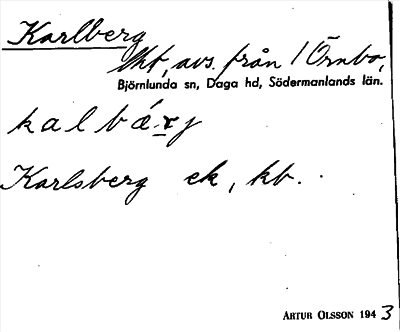 Karlberg
lht, avs. från 1 Örnbo,
Björnlunda sn, Daga hd, Södermanlands län.
kalbárj
Karlsberg ek, kb.
ARTUR OLSSON 1943